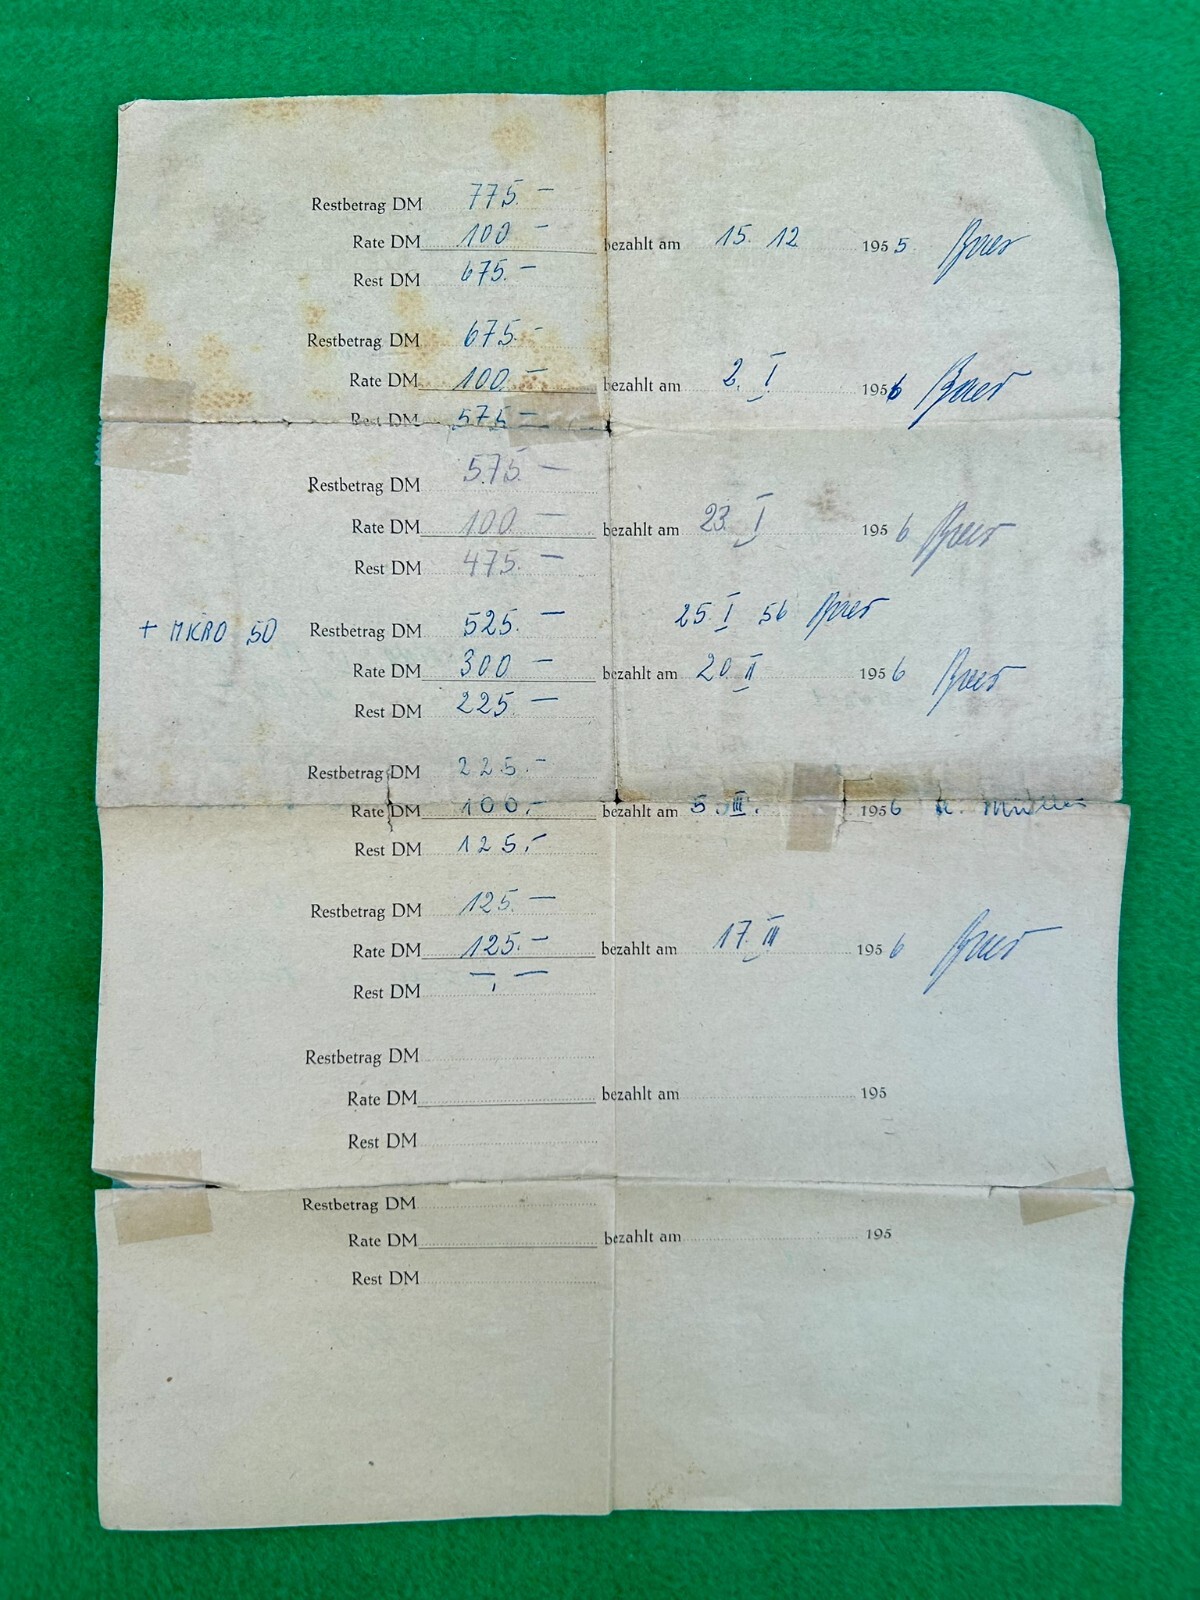 Restbetrag DM 775.—
Rate DM 100 — bezahlt am 15. 12 1955. Baer
Rest DM 675.—
Restbetrag DM 675.-
Rate DM 100.— bezahlt am 2. I 1956 Baer
Rest DM 575 —
Restbetrag DM 575.—
Rate DM 100 — bezahlt am 23. I 1956 Baer
Rest DM 475.—
+ MIKRO 50 Restbetrag DM 525.— 25 I 56 Baer
Rate DM 300 — bezahlt am 20. II 1956 Baer
Rest DM 225.—
Restbetrag DM 225.-
Rate DM 100,- bezahlt am 5. III. 1956
Rest DM 125,-
Restbetrag DM 125.—
Rate DM 125.— bezahlt am 17. III 1956 Baer
Rest DM —,—
Restbetrag DM
Rate DM bezahlt am 195
Rest DM
Restbetrag DM
Rate DM bezahlt am 195
Rest DM